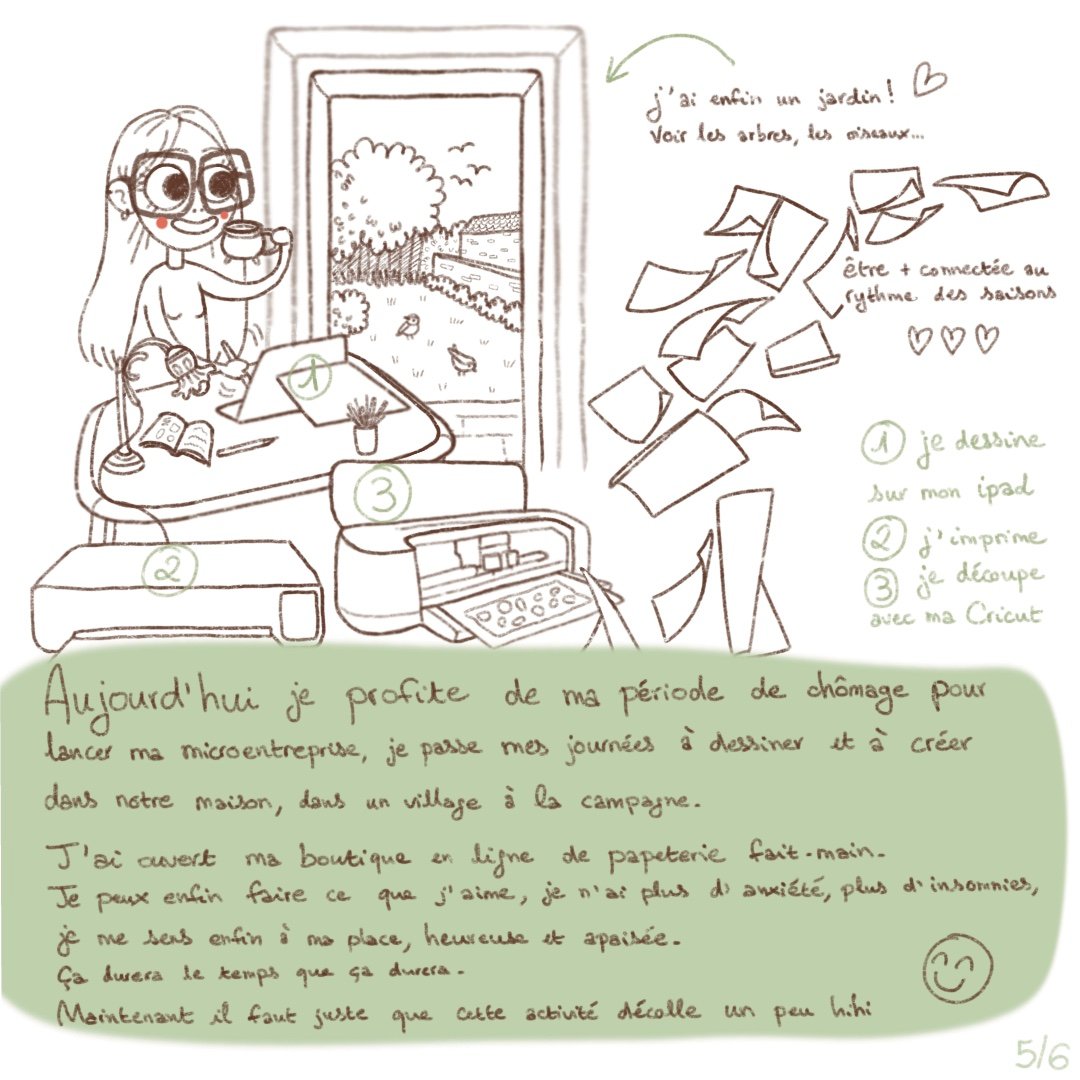 j'ai enfin un jardin !
Voir les arbres, les oiseaux...
être + connectée au
rythme des saisons
1 je dessine
sur mon ipad
2 j'imprime
3 je découpe
avec ma Cricut
1
2
3
Aujourd'hui je profite de ma période de chômage pour
lancer ma microentreprise, je passe mes journées à dessiner et à créer
dans notre maison, dans un village à la campagne.
J'ai ouvert ma boutique en ligne de papeterie fait-main.
Je peux enfin faire ce que j'aime, je n'ai plus d'anxiété, plus d'insomnies,
je me sens enfin à ma place, heureuse et apaisée.
Ça durera le temps que ça durera.
Maintenant il faut juste que cette activité décolle un peu hihi
5/6